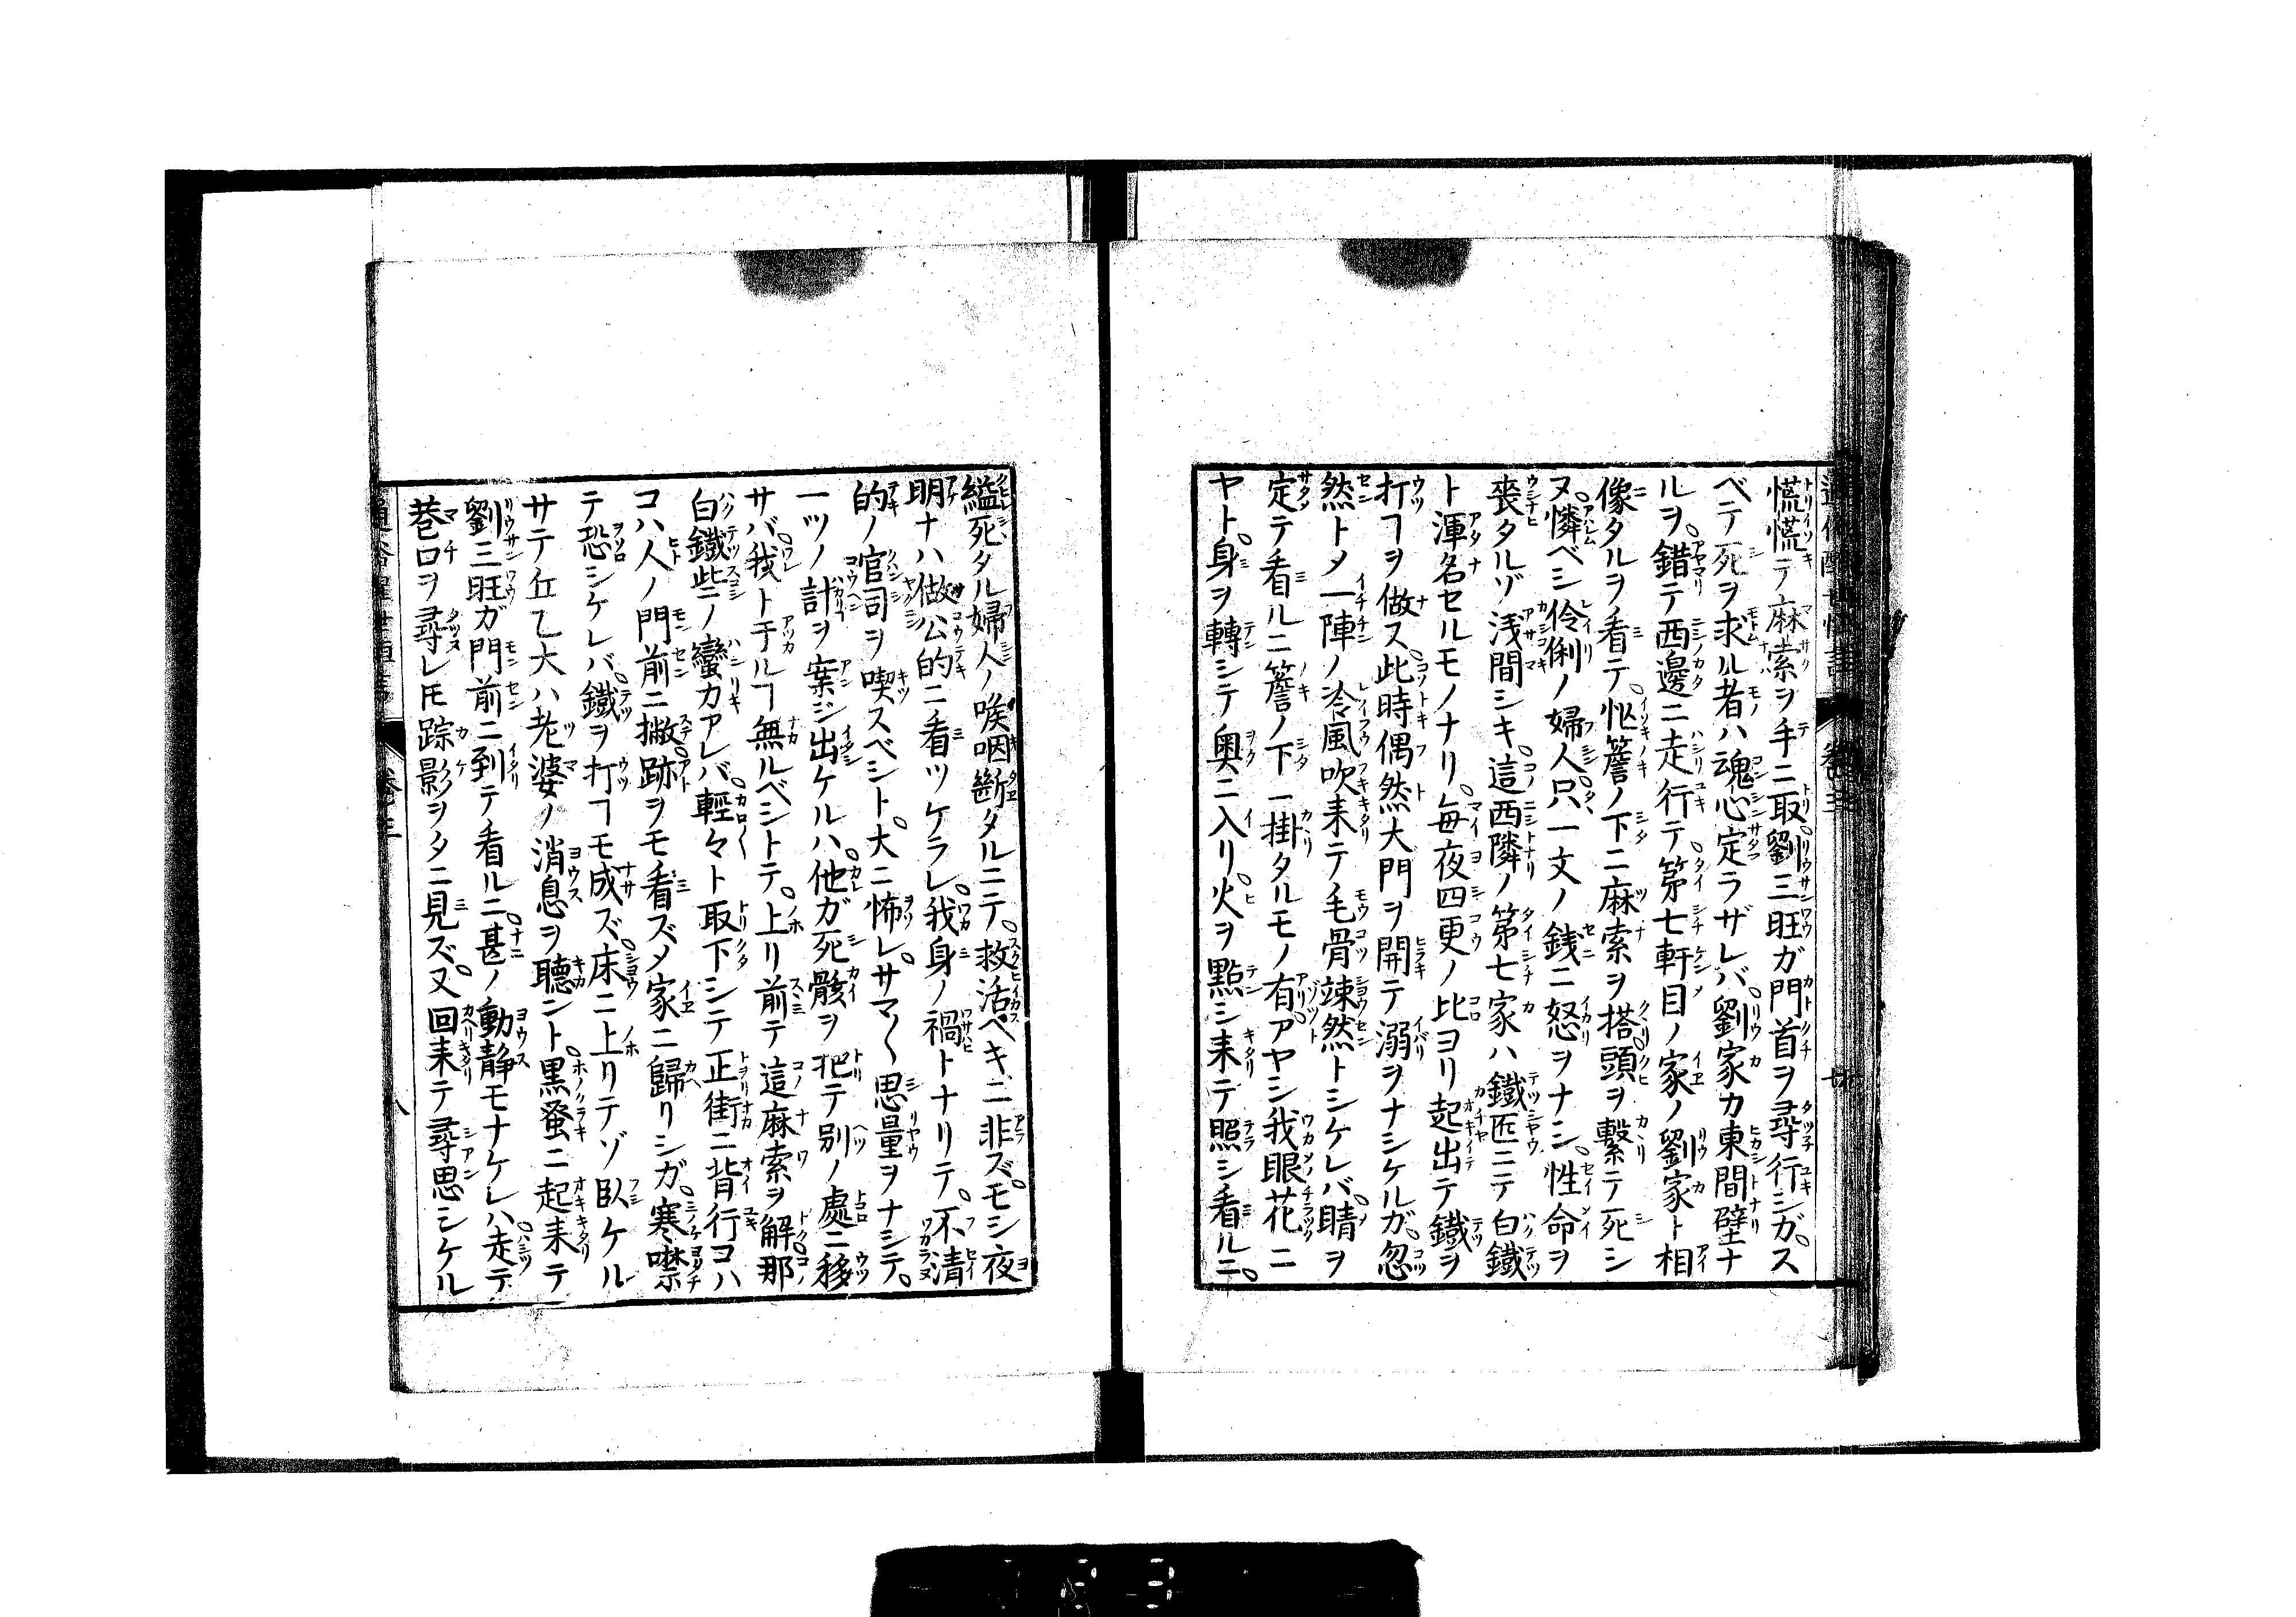 慌慌テ麻索ヲ手ニ取。劉三旺ガ門首ヲ尋行シガ。ス
ベテ死ヲ求ル者ハ魂心定ラザレバ。劉家カ東間壁ナ
ルヲ。錯テ西邊ニ走行テ。第七軒目ノ家ノ劉家ト相
像タルヲ看テ。怄簷ノ下ニ麻索ヲ搭。頭ヲ繋テ死シ
ヌ。憐ベシ伶俐ノ婦人。只一文ノ銭ニ怒ヲナシ。性命ヲ
喪タルゾ浅間シキ。這西隣ノ第七家ハ鐵匠ニテ白鐵
ト渾名セルモノナリ。毎夜四更ノ比ヨリ起出テ鐵ヲ
打ヿヲ做ス。此時偶然大門ヲ開テ溺ヲナシケルガ。忽
然トメ一陣ノ冷風吹来テ毛骨竦然トシケレバ。睛ヲ
定テ看ルニ簷ノ下ニ掛タルモノ有。アヤシ我眼花ニ
ヤト。身ヲ轉シテ奥ニ入リ。火ヲ點シ来テ照シ看ルニ。
縊死タル婦人ノ喉咽斷タルニテ。救活ベキニ非ズ。モシ夜
明ナハ做公的ニ看ツケラレ。我身ノ禍トナリテ。不清
的ノ官司ヲ喫スベシト。大ニ怖レ。サマ〱思量ヲナシテ。
一ツノ計ヲ案ジ出ケルハ。他ガ死骸ヲ把テ別ノ處ニ移
サバ。我ト干ルヿ無ルベシトテ。上リ前テ這麻索ヲ解。那
白鐵些ニノ蠻力アレバ。輕々ト取下シテ正街ニ背行コハ
コハ人ノ門前ニ撇。跡ヲモ看ズメ家ニ歸リシガ。寒噤
テ恐シケレバ。鐵ヲ打ヿモ成ズ。床ニ上リテゾ臥ケル
サテ丘乙大ハ老婆ノ消息ヲ聽ント。黒蚤ニ起来テ
劉三旺ガ門前ニ到テ看ルニ。甚ノ動静モナケレハ走テ
巷口ヲ尋レ𪜈踪影ヲタニ見ズ。又回来テ尋思シケル